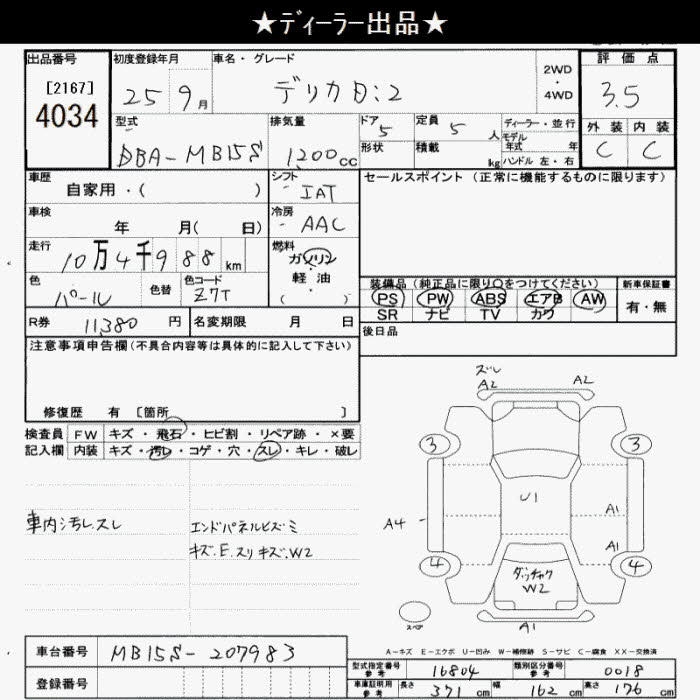 ★ディーラー出品★
出品番号
[2167]
4034
初度登録年月
25 9月
車名・グレード
デリカD:2
2WD
・
4WD
評価点
3.5
外装 内装
C C
型式
DBA-MB15S
排気量
1,200cc
ドア 5
形状
定員 5 人
積載 kg
ディーラー・並行
モデル年式 年
ハンドル 左・右
車歴
自家用・( )
シフト
IAT
セールスポイント (正常に機能するものに限ります)
車検
年 月( 日)
冷房
AAC
走行
10万4千988km
燃料
ガソリン
・
軽油
( )
色
パール
色替
色コード
Z7T
装備品(純正品に限り○をつけてください)
PS PW ABS エアB AW
SR ナビ TV カワ
新車保証書
有・無
R券 11,380円
名変期限 月 日
後日品
注意事項申告欄(不具合内容等は具体的に記入して下さい)
修復歴 有 [箇所 ]
検査員記入欄
FW キズ・飛石・ヒビ割・リペア跡・×要
内装 キズ・汚レ・コゲ・穴・スレ・キレ・破レ
車内汚レスレ
エンドパネルヒズミ
キズ.E.スリキズ.W2
ズレ
A2 A2
3 3
U1
A1
A4
A1
4 4
W2
A1
スペア
A-キズ E-エクボ U-凹み W-補修跡 S-サビ C-腐食 XX-交換済
車台番号 MB15S-207983
登録番号
型式指定番号 参考 16804
類別区分番号 参考 0018
車庫証明用 参考 長さ 371cm 幅 162cm 高さ 176cm